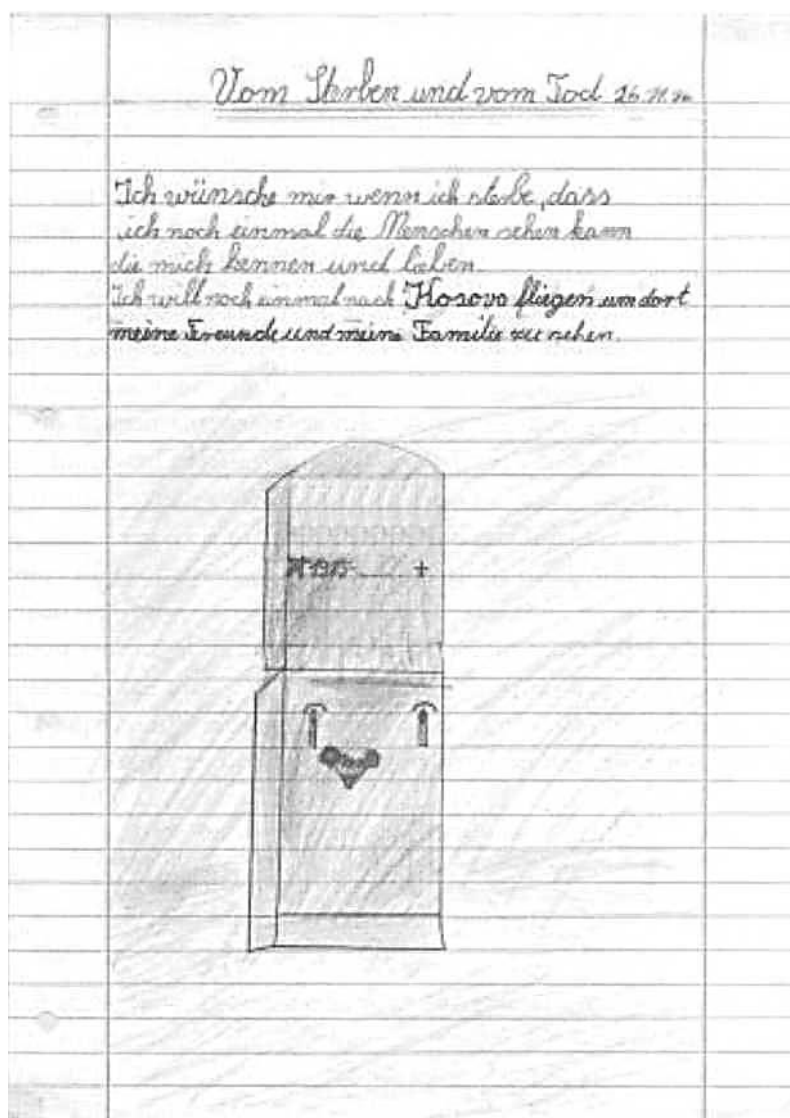 Vom Sterben und vom Tod 26.11.
Ich wünsche mir wenn ich sterbe, dass
ich noch einmal die Menschen sehen kann
die mich kennen und lieben.
Ich will noch einmal nach Kosovo fliegen um dort
meine Freunde und meine Familie zu sehen.